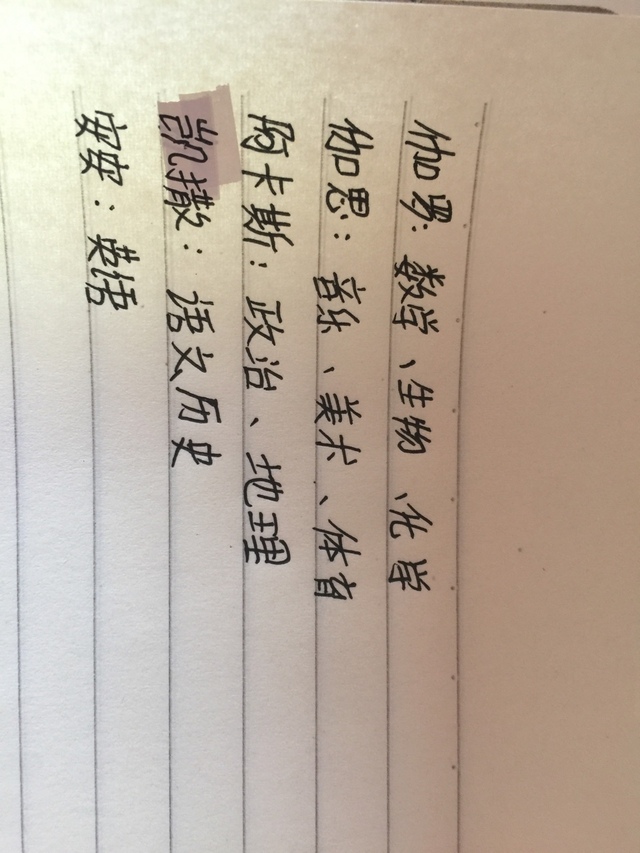 伽罗：数学、生物、化学
伽思：音乐、美术、体育
阿卡斯：政治、地理
凯撒：语文历史
安安：英语